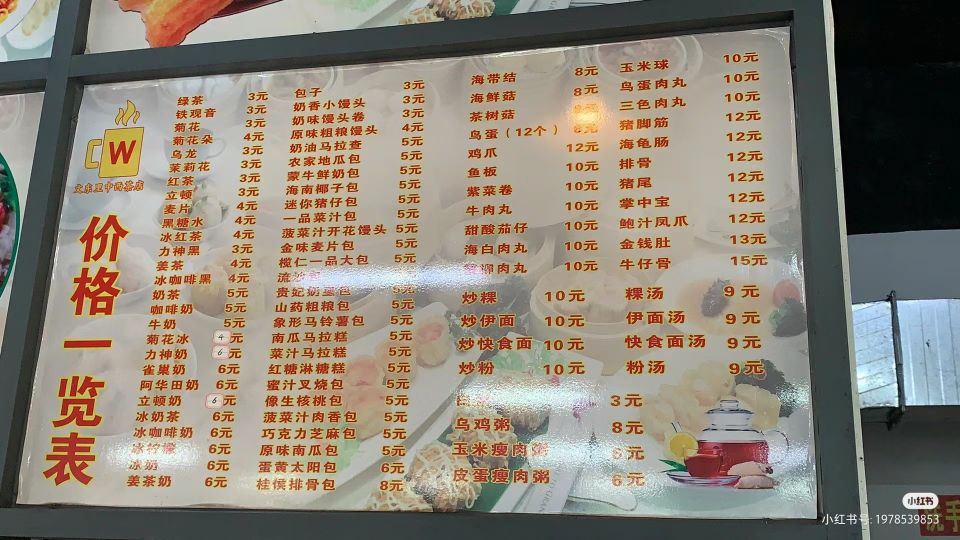 W
文东里中西茶店
价格一览表
绿茶 3元
铁观音 3元
菊花 3元
菊花朵 4元
乌龙 3元
茉莉花 3元
红茶 3元
立顿 3元
麦片 4元
黑糖水 4元
冰红茶 4元
力神黑 3元
姜茶 4元
冰咖啡黑 4元
奶茶 5元
咖啡奶 5元
牛奶 5元
菊花冰 4元
力神奶 6元
雀巢奶 6元
阿华田奶 6元
立顿奶 6元
冰奶茶 6元
冰咖啡奶 6元
冰柠檬 6元
冰奶 6元
姜茶奶 6元
包子 3元
奶香小馒头 3元
奶味馒头卷 3元
原味粗粮馒头 4元
奶油马拉查 5元
农家地瓜包 5元
蒙牛鲜奶包 5元
海南椰子包 5元
迷你猪仔包 5元
一品菜汁包 5元
菠菜汁开花馒头 5元
金味麦片包 5元
榄仁一品大包 5元
流沙包 5元
贵妃奶皇包 5元
山药粗粮包 5元
象形马铃薯包 5元
南瓜马拉糕 5元
菜汁马拉糕 5元
红糖淋糖糕 5元
蜜汁叉烧包 5元
像生核桃包 5元
菠菜汁肉香包 5元
巧克力芝麻包 5元
原味南瓜包 5元
蛋黄太阳包 6元
桂馍排骨包 8元
海带结 8元
海鲜菇 8元
茶树菇
鸟蛋（12个） 8元
鸡爪 12元
鱼板 10元
紫菜卷 10元
牛肉丸 10元
甜酸茄仔 10元
海白肉丸 10元
柳肉丸 10元
玉米球 10元
鸟蛋肉丸 10元
三色肉丸 10元
猪脚筋 12元
海龟肠 12元
排骨 12元
猪尾 12元
掌中宝 12元
鲍汁凤爪 12元
金钱肚 13元
牛仔骨 15元
炒粿 10元
炒伊面 10元
炒快食面 10元
炒粉 10元
粿汤 9元
伊面汤 9元
快食面汤 9元
粉汤 9元
3元
乌鸡粥 8元
玉米瘦肉粥 6元
皮蛋瘦肉粥 6元
洗手
小红书
小红书号: 1978539853